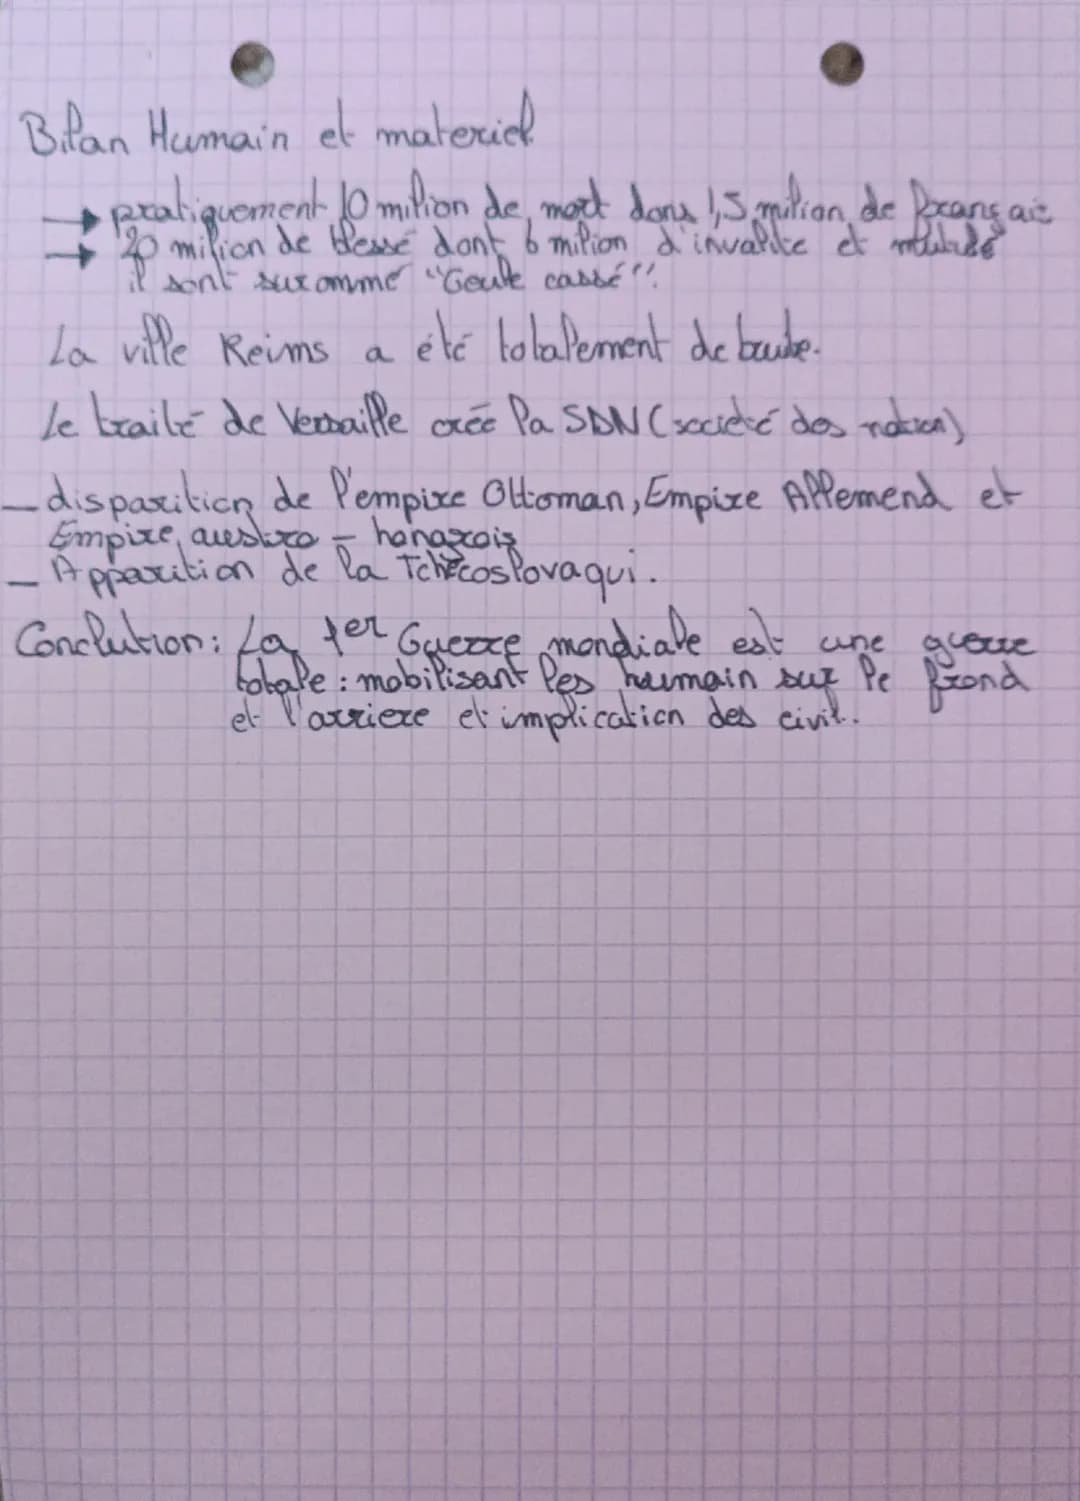 Bilan Humain et materiel
→ pratiquement 10 milion de mort dans 1,5 milion de français
→ 20 milion de blessé dont 6 milion d'invalite et mutulé
il sont surommé "Geule cassé".
La ville Reims a été totalement de truite.
Le traité de Versaille créé la SDN (société des nation)
- disparition de l'empire Ottoman, Empire Allemend et
Empire austro - hongrois
- Apparition de la Tchécoslovaqui.
Conclution: La 1er Guerre mondiale est une guerre
totale : mobilisant les humain sur le frond
et l'arriere et implication des civil.